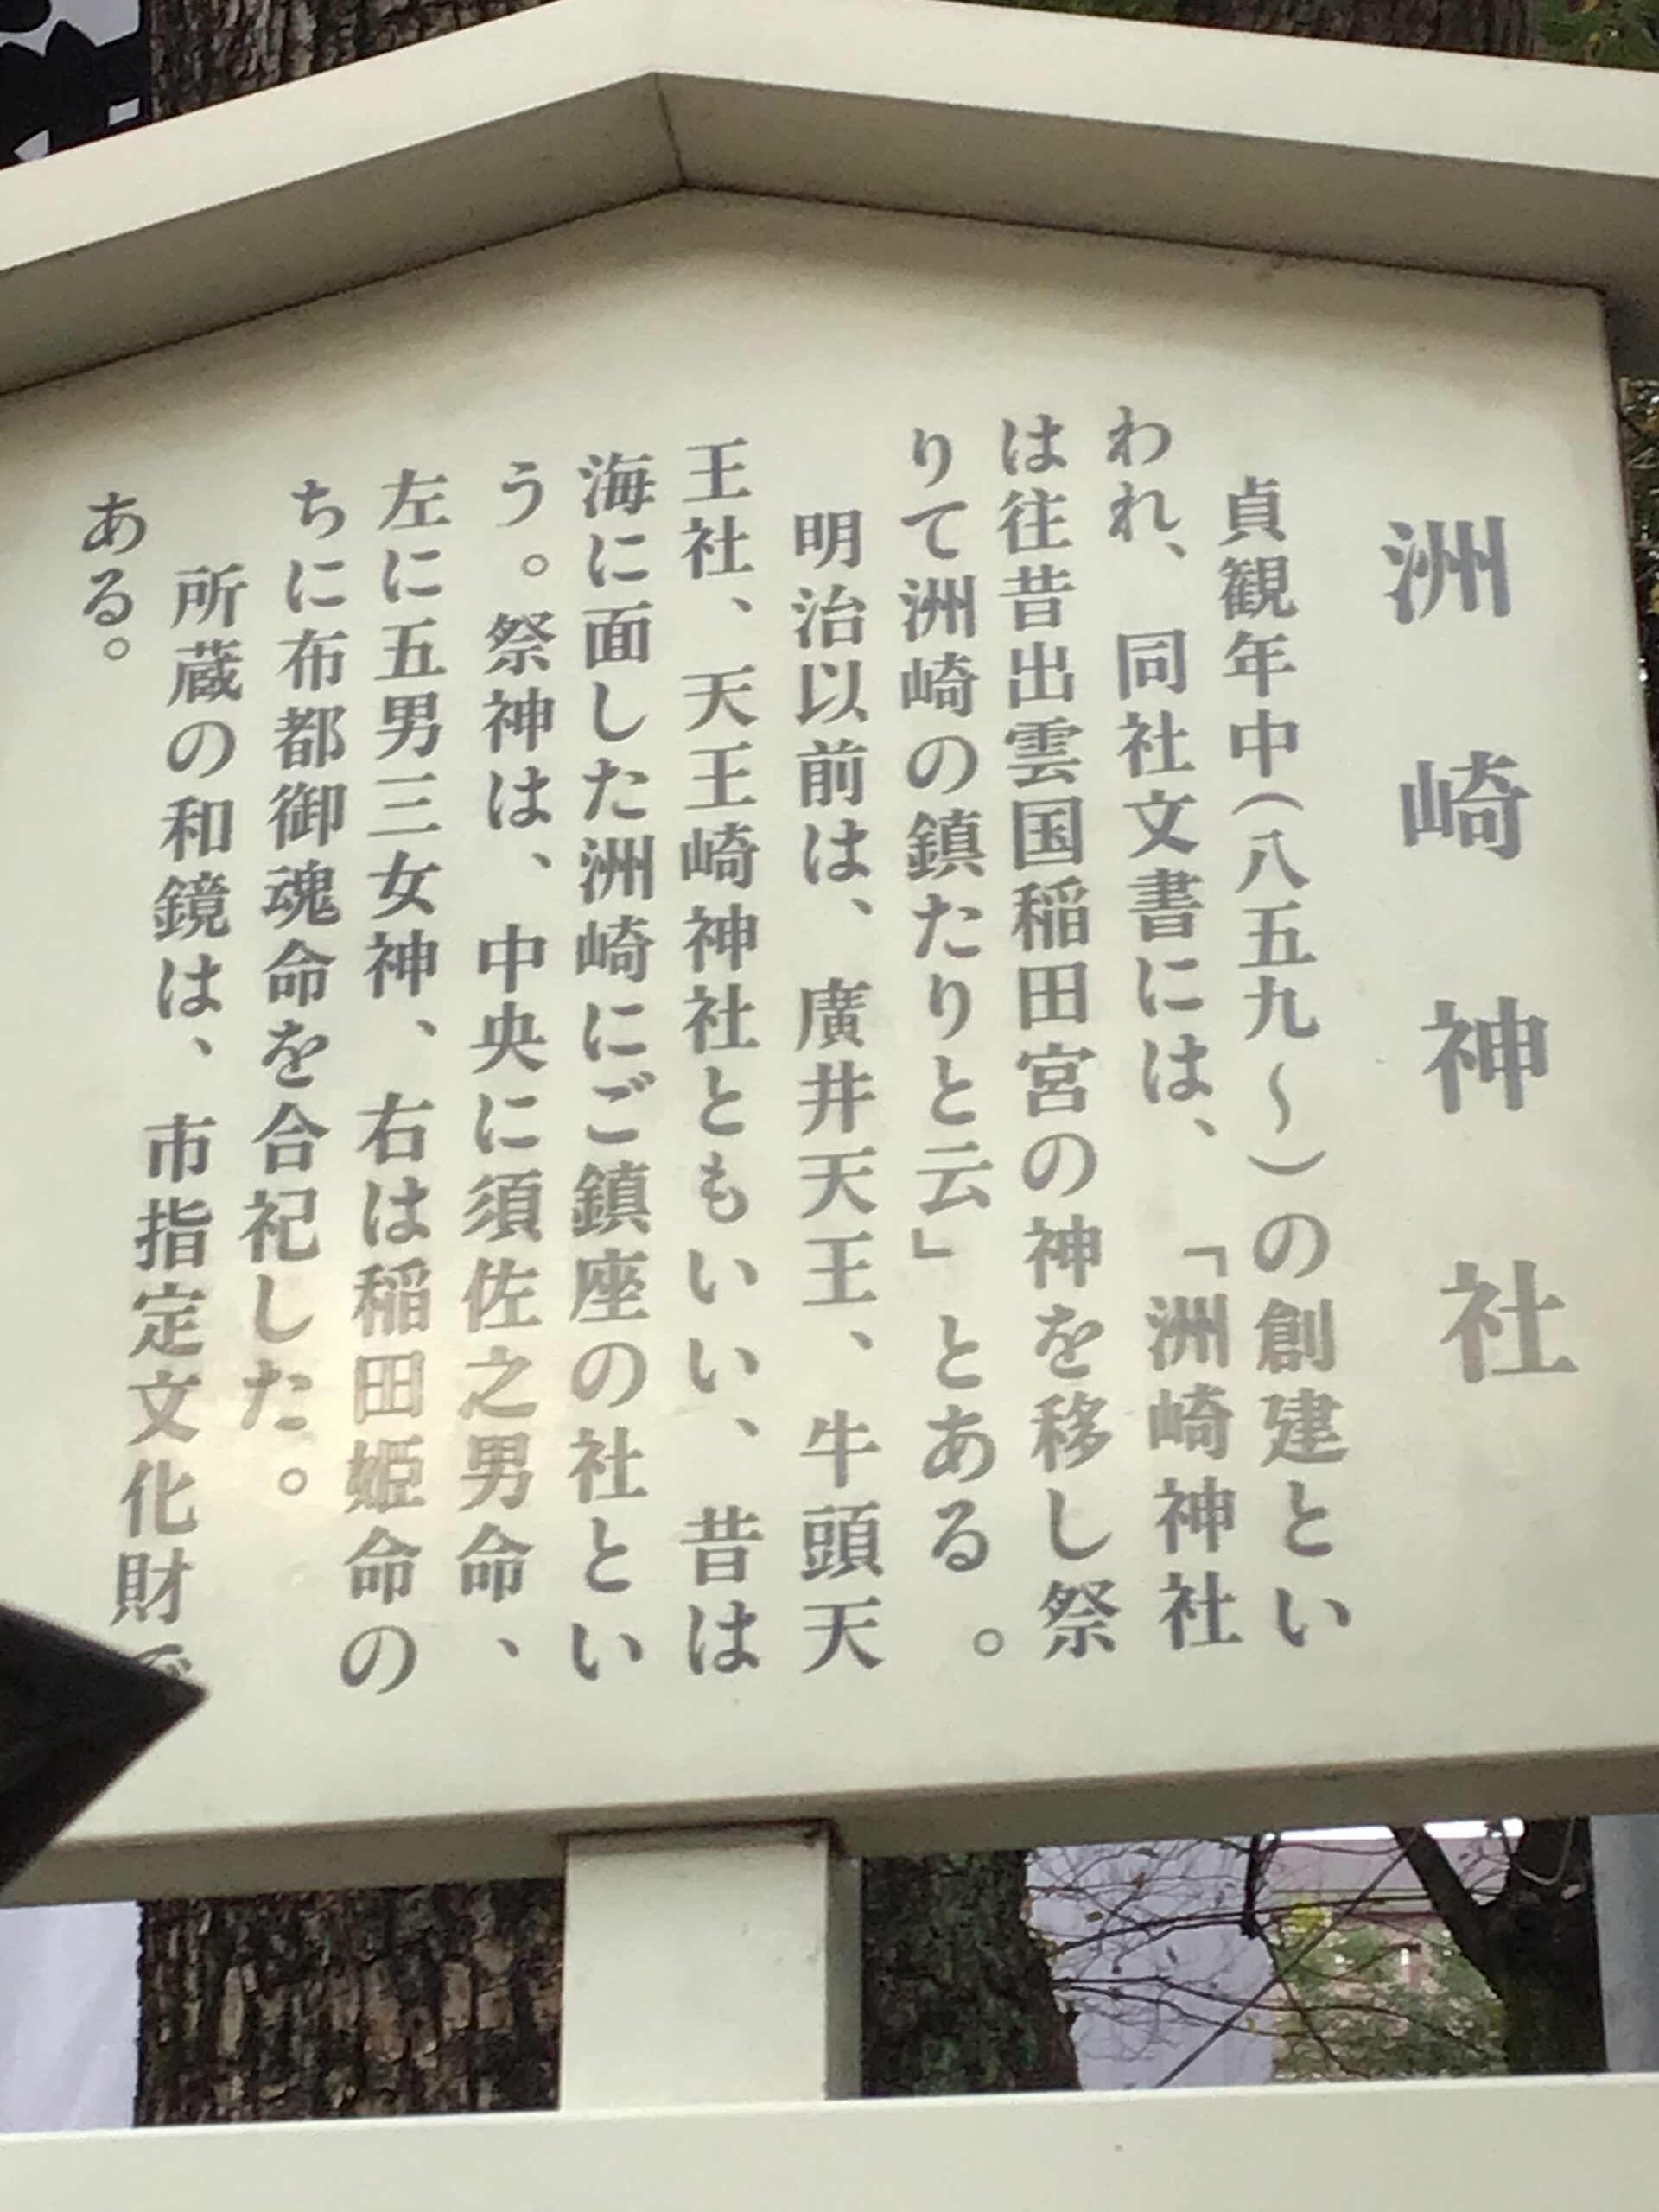 洲崎神社
貞観年中（八五九〜）の創建とい
われ、同社文書には、「洲崎神社
は往昔出雲国稲田宮の神を移し祭
りて洲崎の鎮たりと云」とある。
明治以前は、廣井天王、牛頭天
王社、天王崎神社ともいい、昔は
海に面した洲崎にご鎮座の社とい
う。祭神は、中央に須佐之男命、
左に五男三女神、右は稲田姫命の
ちに布都御魂命を合祀した。
所蔵の和鏡は、市指定文化財で
ある。